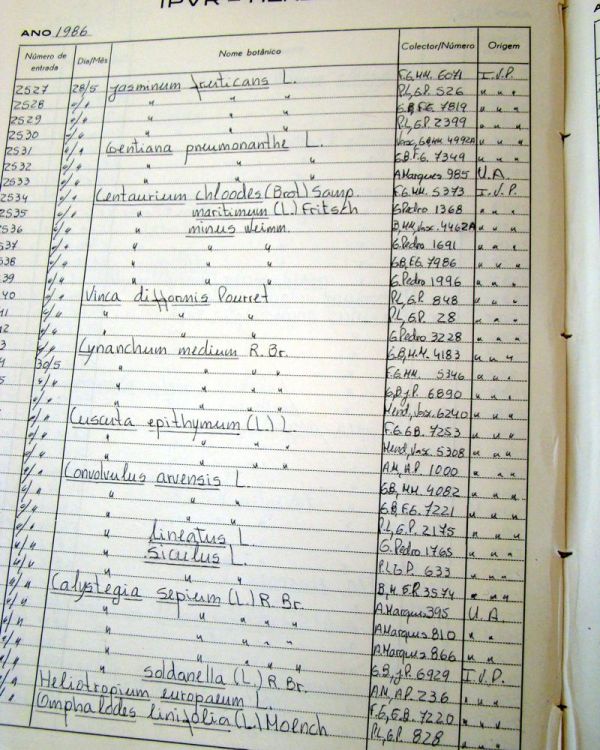 IPVR – 
ANO 1986
Número de entrada Dia/Mês Nome botânico Colector/Número Origem
2527 28/5 Jasminum fruticans L. F.G., M.M. 6071 I.V.P.
2528 〃 〃 〃 〃 P.L., G.P. 526 〃 〃 〃
2529 〃 〃 〃 〃 G.B, F.G. 7819 〃 〃 〃
2530 〃 〃 〃 〃 P.L, G.P. 2399 〃 〃 〃
2531 〃 Gentiana pneumonanthe L. Vasc., G.B, M.M. 4992A 〃 〃 〃
2532 〃 〃 〃 〃 G.B. F.G. 7349 〃 〃
2533 〃 〃 〃 〃 A.Marques 985 U.A.
2534 〃 Centaurium chloodes (Brot.) Samp. F.G., M.M. 5373 I.V.P.
2535 〃 〃 maritimum (L.) Fritsch G.Pedro 1368 〃 〃 〃
2536 〃 〃 minus Weimm. B, M.M, Vasc. 4462A 〃 〃 〃
37 〃 〃 〃 〃 G.Pedro 1691 〃 〃 〃
38 〃 〃 〃 〃 G.B, F.G. 7986 〃 〃 〃
39 〃 〃 〃 〃 G.Pedro 1996 〃 〃 〃
40 〃 Vinca difformis Pourret P.L, G.P. 848 〃 〃 〃
41 〃 〃 〃 〃 P.L, G.P. 28 〃 〃 〃
42 〃 〃 〃 〃 G.Pedro 3228 〃 〃 〃
3 〃 Cynanchum medium R. Br. G.B, M.M. 4183 〃 〃 〃
4 30/5 〃 〃 〃 F.G. M.M. 5346 〃 〃 〃
5 〃 〃 〃 〃 G.B, J.P. 6890 〃 〃 〃
〃 〃 〃 〃 Mend, Vasc. 6240 〃 〃 〃
〃 Cuscuta epithymum (L.) L. F.G, G.B. 7253 〃 〃 〃
〃 〃 〃 〃 Mend, Vasc. 5308 〃 〃 〃
〃 〃 〃 〃 A.M, A.P. 1000 〃 〃 〃
〃 Convolvulus arvensis L. G.B, M.M. 4082 〃 〃 〃
〃 〃 〃 〃 G.B, F.G. 7221 〃 〃 〃
〃 〃 〃 〃 P.L, G.P. 2175 〃 〃 〃
〃 〃 lineatus L. G. Pedro 1765 〃 〃 〃
〃 〃 siculus L. P.L, G.P. 633 〃 〃 〃
〃 〃 〃 〃 B, M. F.P. 3574 〃 〃 〃
〃 Calystegia sepium (L.) R. Br. A.Marques 395 U.A.
〃 〃 〃 〃 〃 A.Marques 810 〃 〃
〃 〃 〃 〃 〃 A.Marques 866 〃 〃
〃 〃 soldanella (L.) R. Br. G.B, J.P. 6929 I.V.P.
〃 Heliotropium europaeum L. A.M, A.P. 236 〃 〃 〃
〃 Omphalodes linifolia (L.) Moench F.G, G.B. 7220 〃 〃 〃
P.L, G.P. 828 〃 〃